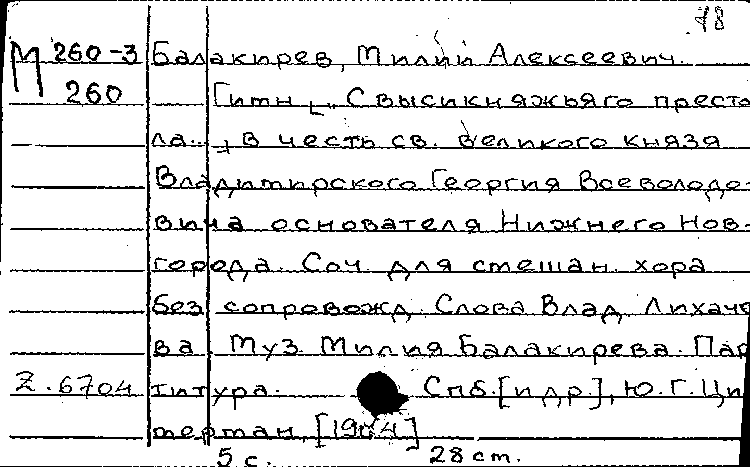 78
М 260-3 Балакирев, Милий Алексеевич.
260 Гимн [„С высикняжьяго престо
ла..."] в честь св. великого князя
Владимирского Георгия Всеволодо-
вича основателя Нижнего Нов-
города. Соч. для смешан. хора
без сопровожд. Слова Влад. Лихаче
ва. Муз. Милия Балакирева. Пар
Z.6704 титура. Спб. [и др], Ю.Г. Ци
мерман, [1904]
5 с. 28 cm.